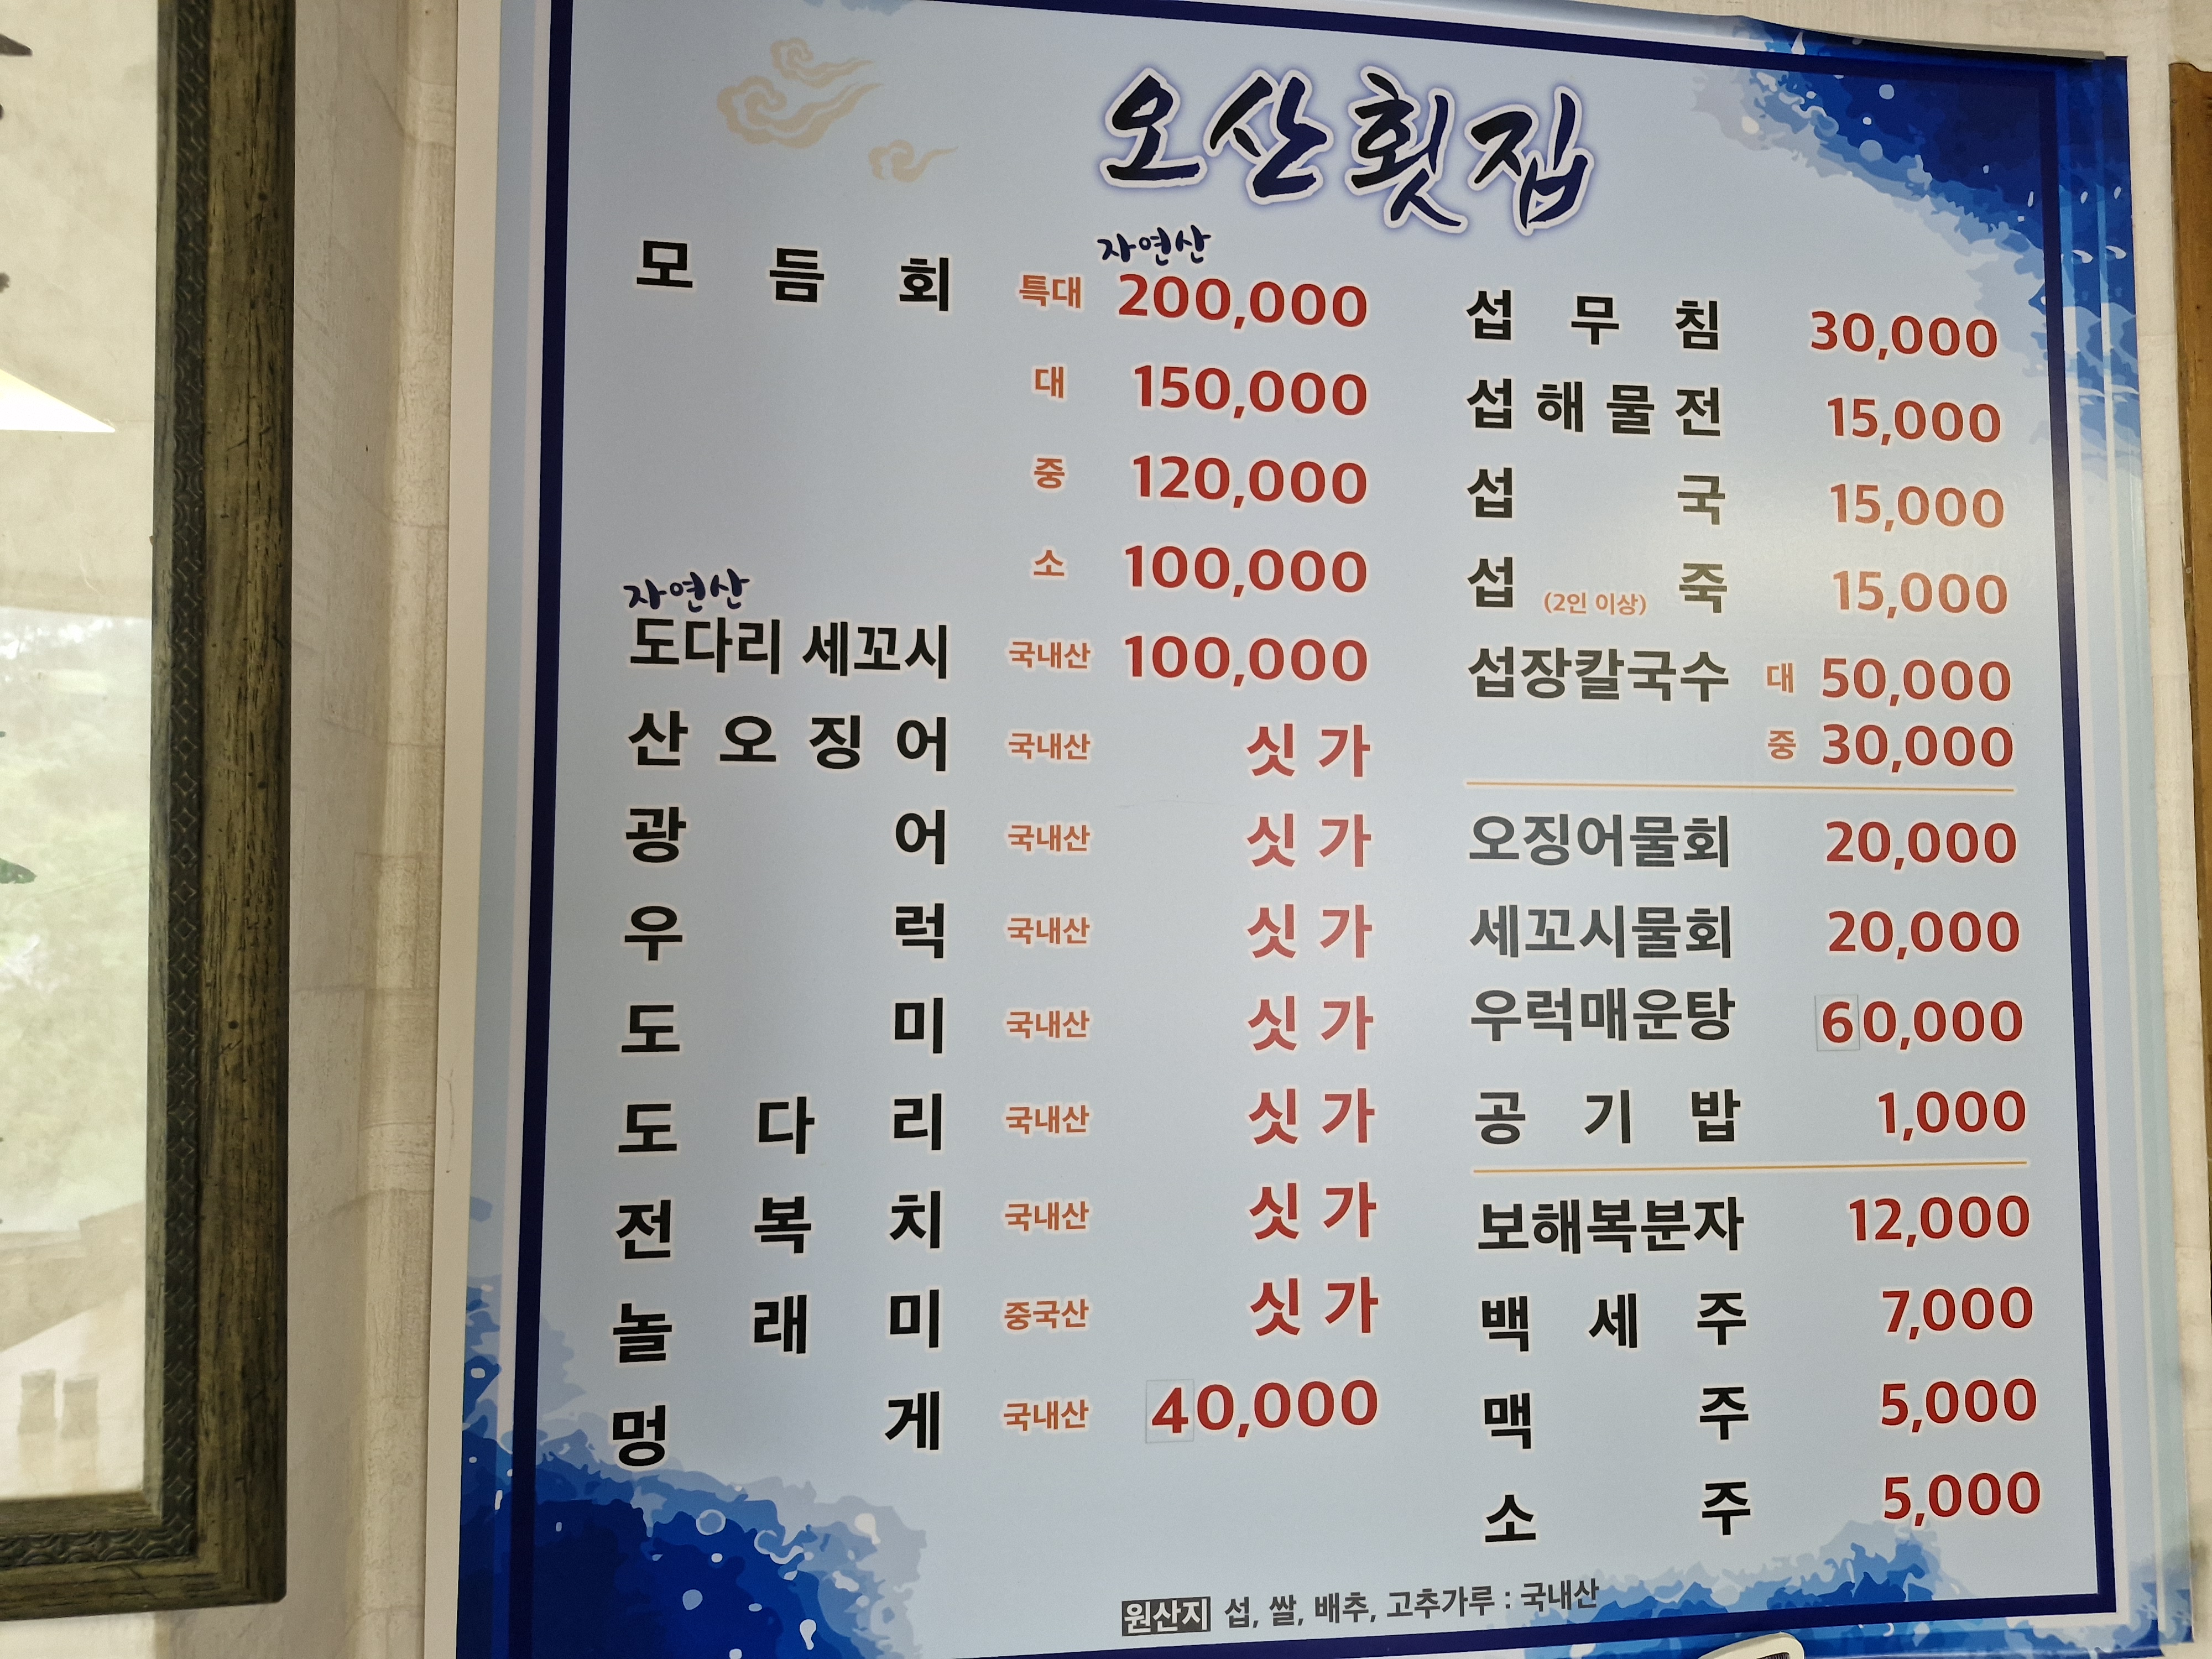 오산횟집
모듬회 특대 자연산 200,000
대 150,000
중 120,000
소 100,000
자연산
도다리 세꼬시 국내산 100,000
산오징어 국내산 싯가
광어 국내산 싯가
우럭 국내산 싯가
도미 국내산 싯가
도다리 국내산 싯가
전복치 국내산 싯가
놀래미 중국산 싯가
멍게 국내산 40,000
섭무침 30,000
섭해물전 15,000
섭국 15,000
섭죽 (2인 이상) 15,000
섭장칼국수 대 50,000
중 30,000
오징어물회 20,000
세꼬시물회 20,000
우럭매운탕 60,000
공기밥 1,000
보해복분자 12,000
백세주 7,000
맥주 5,000
소주 5,000
원산지 섭, 쌀, 배추, 고추가루 : 국내산